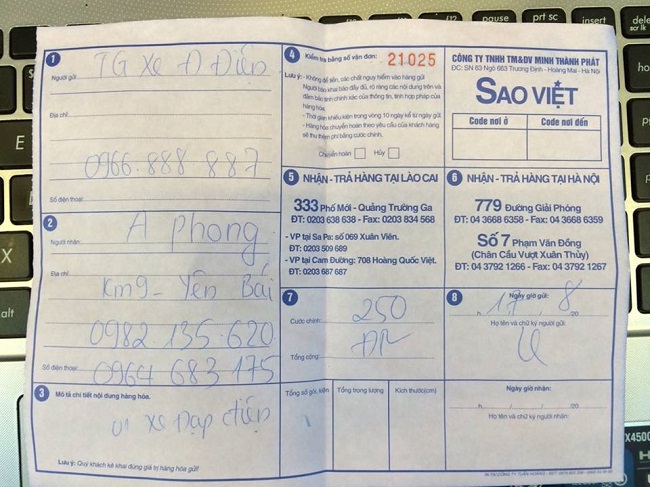 1
Người gửi:
TG Xe Đ Điện
Địa chỉ:
0966.888 887
Số điện thoại:
2
Người nhận:
A Phong
Địa chỉ:
Km9 - Yên Bái
0982.135.620
Số điện thoại:
0964 683 175
3 Mô tả chi tiết nội dung hàng hóa.
01 xe Đạp điện
Lưu ý: Quý khách kê khai đúng giá trị hàng hóa gửi!
4 Kiểm tra bằng số vận đơn: 21025
Lưu ý: - Không để tiền, các chất nguy hiểm vào hàng gửi
Người khai báo đầy đủ, rõ ràng các nội dung trên và
đảm bảo tính chính xác của thông tin, tính hợp pháp của
hàng hóa.
- Thời gian khiếu kiện trong vòng 10 ngày kể từ ngày gửi.
- Hàng hóa chuyển hoàn theo yêu cầu của khách hàng
sẽ thu thêm phí bằng cước chính.
Chuyển hoàn Hủy
CÔNG TY TNHH TM&DV MINH THÀNH PHÁT
ĐC: SN 63 Ngõ 663 Trương Định - Hoàng Mai - Hà Nội
SAO VIỆT
Code nơi ở Code nơi đến
5 NHẬN - TRẢ HÀNG TẠI LÀO CAI
333 Phố Mới - Quảng Trường Ga
ĐT: 0203 638 638 - Fax: 0203 834 568
- VP tại Sa Pa: số 069 Xuân Viên.
ĐT: 0203 509 689
- VP tại Cam Đường: 708 Hoàng Quốc Việt.
ĐT: 0203 687 687
6 NHẬN - TRẢ HÀNG TẠI HÀ NỘI
779 Đường Giải Phóng
ĐT: 04 3668 6358 - Fax: 04 3668 6359
Số 7 Phạm Văn Đồng
(Chân Cầu Vượt Xuân Thủy)
ĐT: 04 3792 1266 - Fax: 04 3792 1267
7
Cước chính: 250
Tổng cộng:
8 Ngày giờ gửi:
h 17 / 8 /20
Họ tên và chữ ký người gửi:
Tổng số gói, kiện Tổng trọng lượng Kích thước(cm)
1
Ngày giờ nhận:
h / /20
Họ tên và chữ ký người nhận:
E
X
prt sc
insert
delete
home
X450C